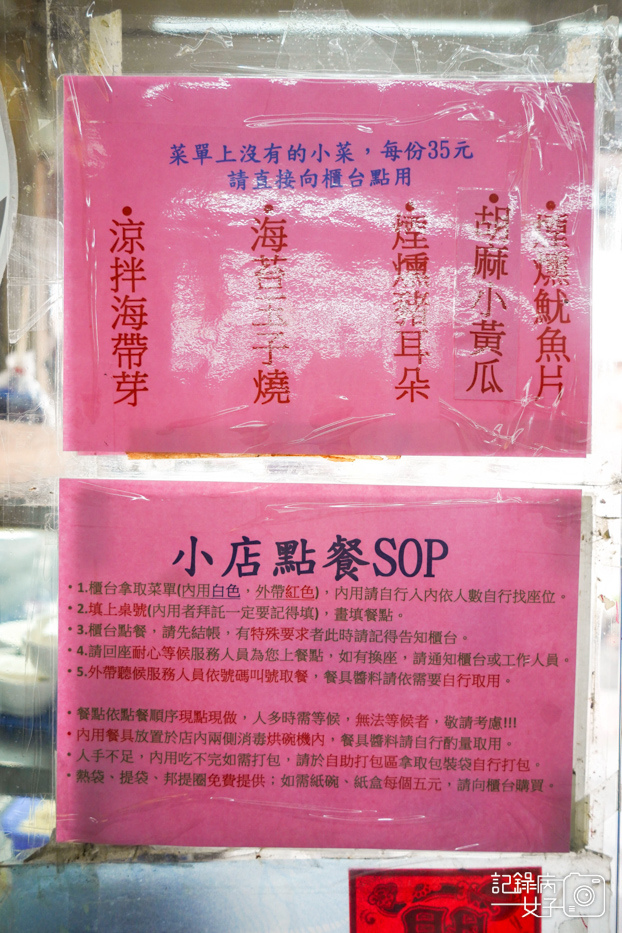 菜單上沒有的小菜，每份35元
請直接向櫃台點用
•煙燻魷魚片
•胡麻小黃瓜
•煙燻豬耳朵
•海苔玉子燒
•涼拌海帶芽
小店點餐SOP
•1.櫃台拿取菜單(內用白色，外帶紅色)，內用請自行入內依人數自行找座位。
•2.填上桌號(內用者拜託一定要記得填)，畫填餐點。
•3.櫃台點餐，請先結帳，有特殊要求者此時請記得告知櫃台。
•4.請回座耐心等候服務人員為您上餐點，如有換座，請通知櫃台或工作人員。
•5.外帶聽候服務人員依號碼叫號取餐，餐具醬料請依需要自行取用。
•餐點依點餐順序現點現做，人多時需等候，無法等候者，敬請考慮!!!
•內用餐具放置於店內兩側消毒烘碗機內，餐具醬料請自行酌量取用。
•人手不足，內用吃不完如需打包，請於自助打包區拿取包裝袋自行打包。
•熱袋、提袋、邦提圈免費提供；如需紙碗、紙盒每個五元，請向櫃台購買。
記錄病
一女子